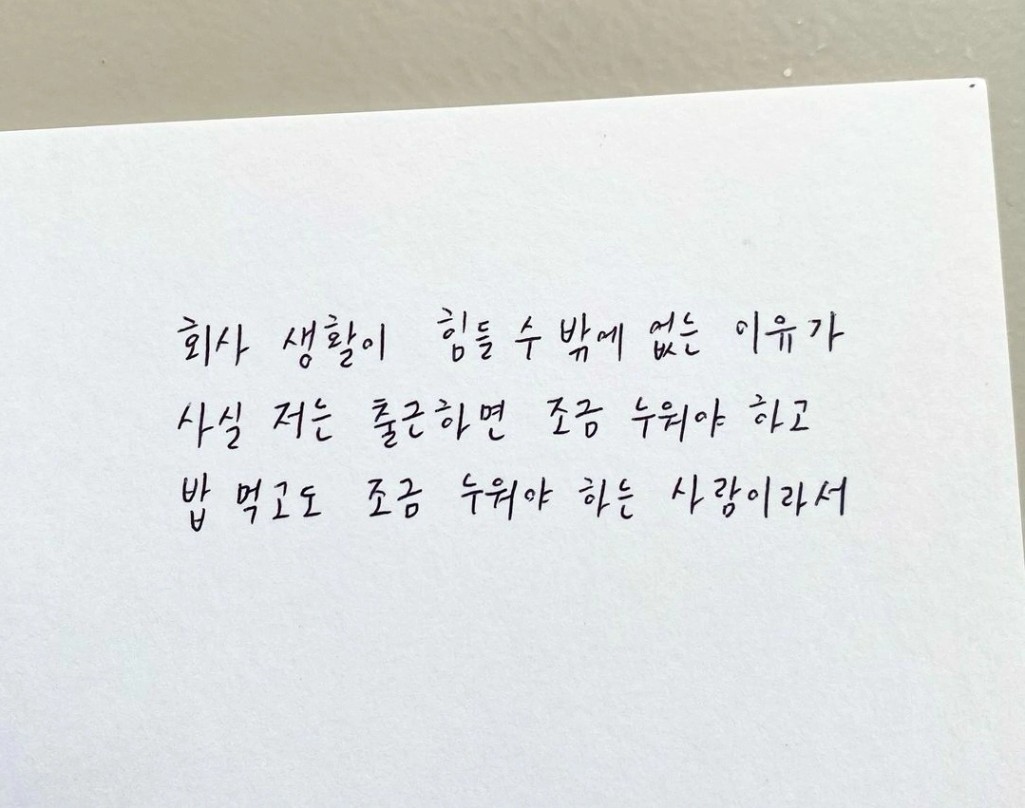 회사 생활이 힘들 수 밖에 없는 이유가
사실 저는 출근하면 조금 누워야 하고
밥 먹고도 조금 누워야 하는 사람이라서